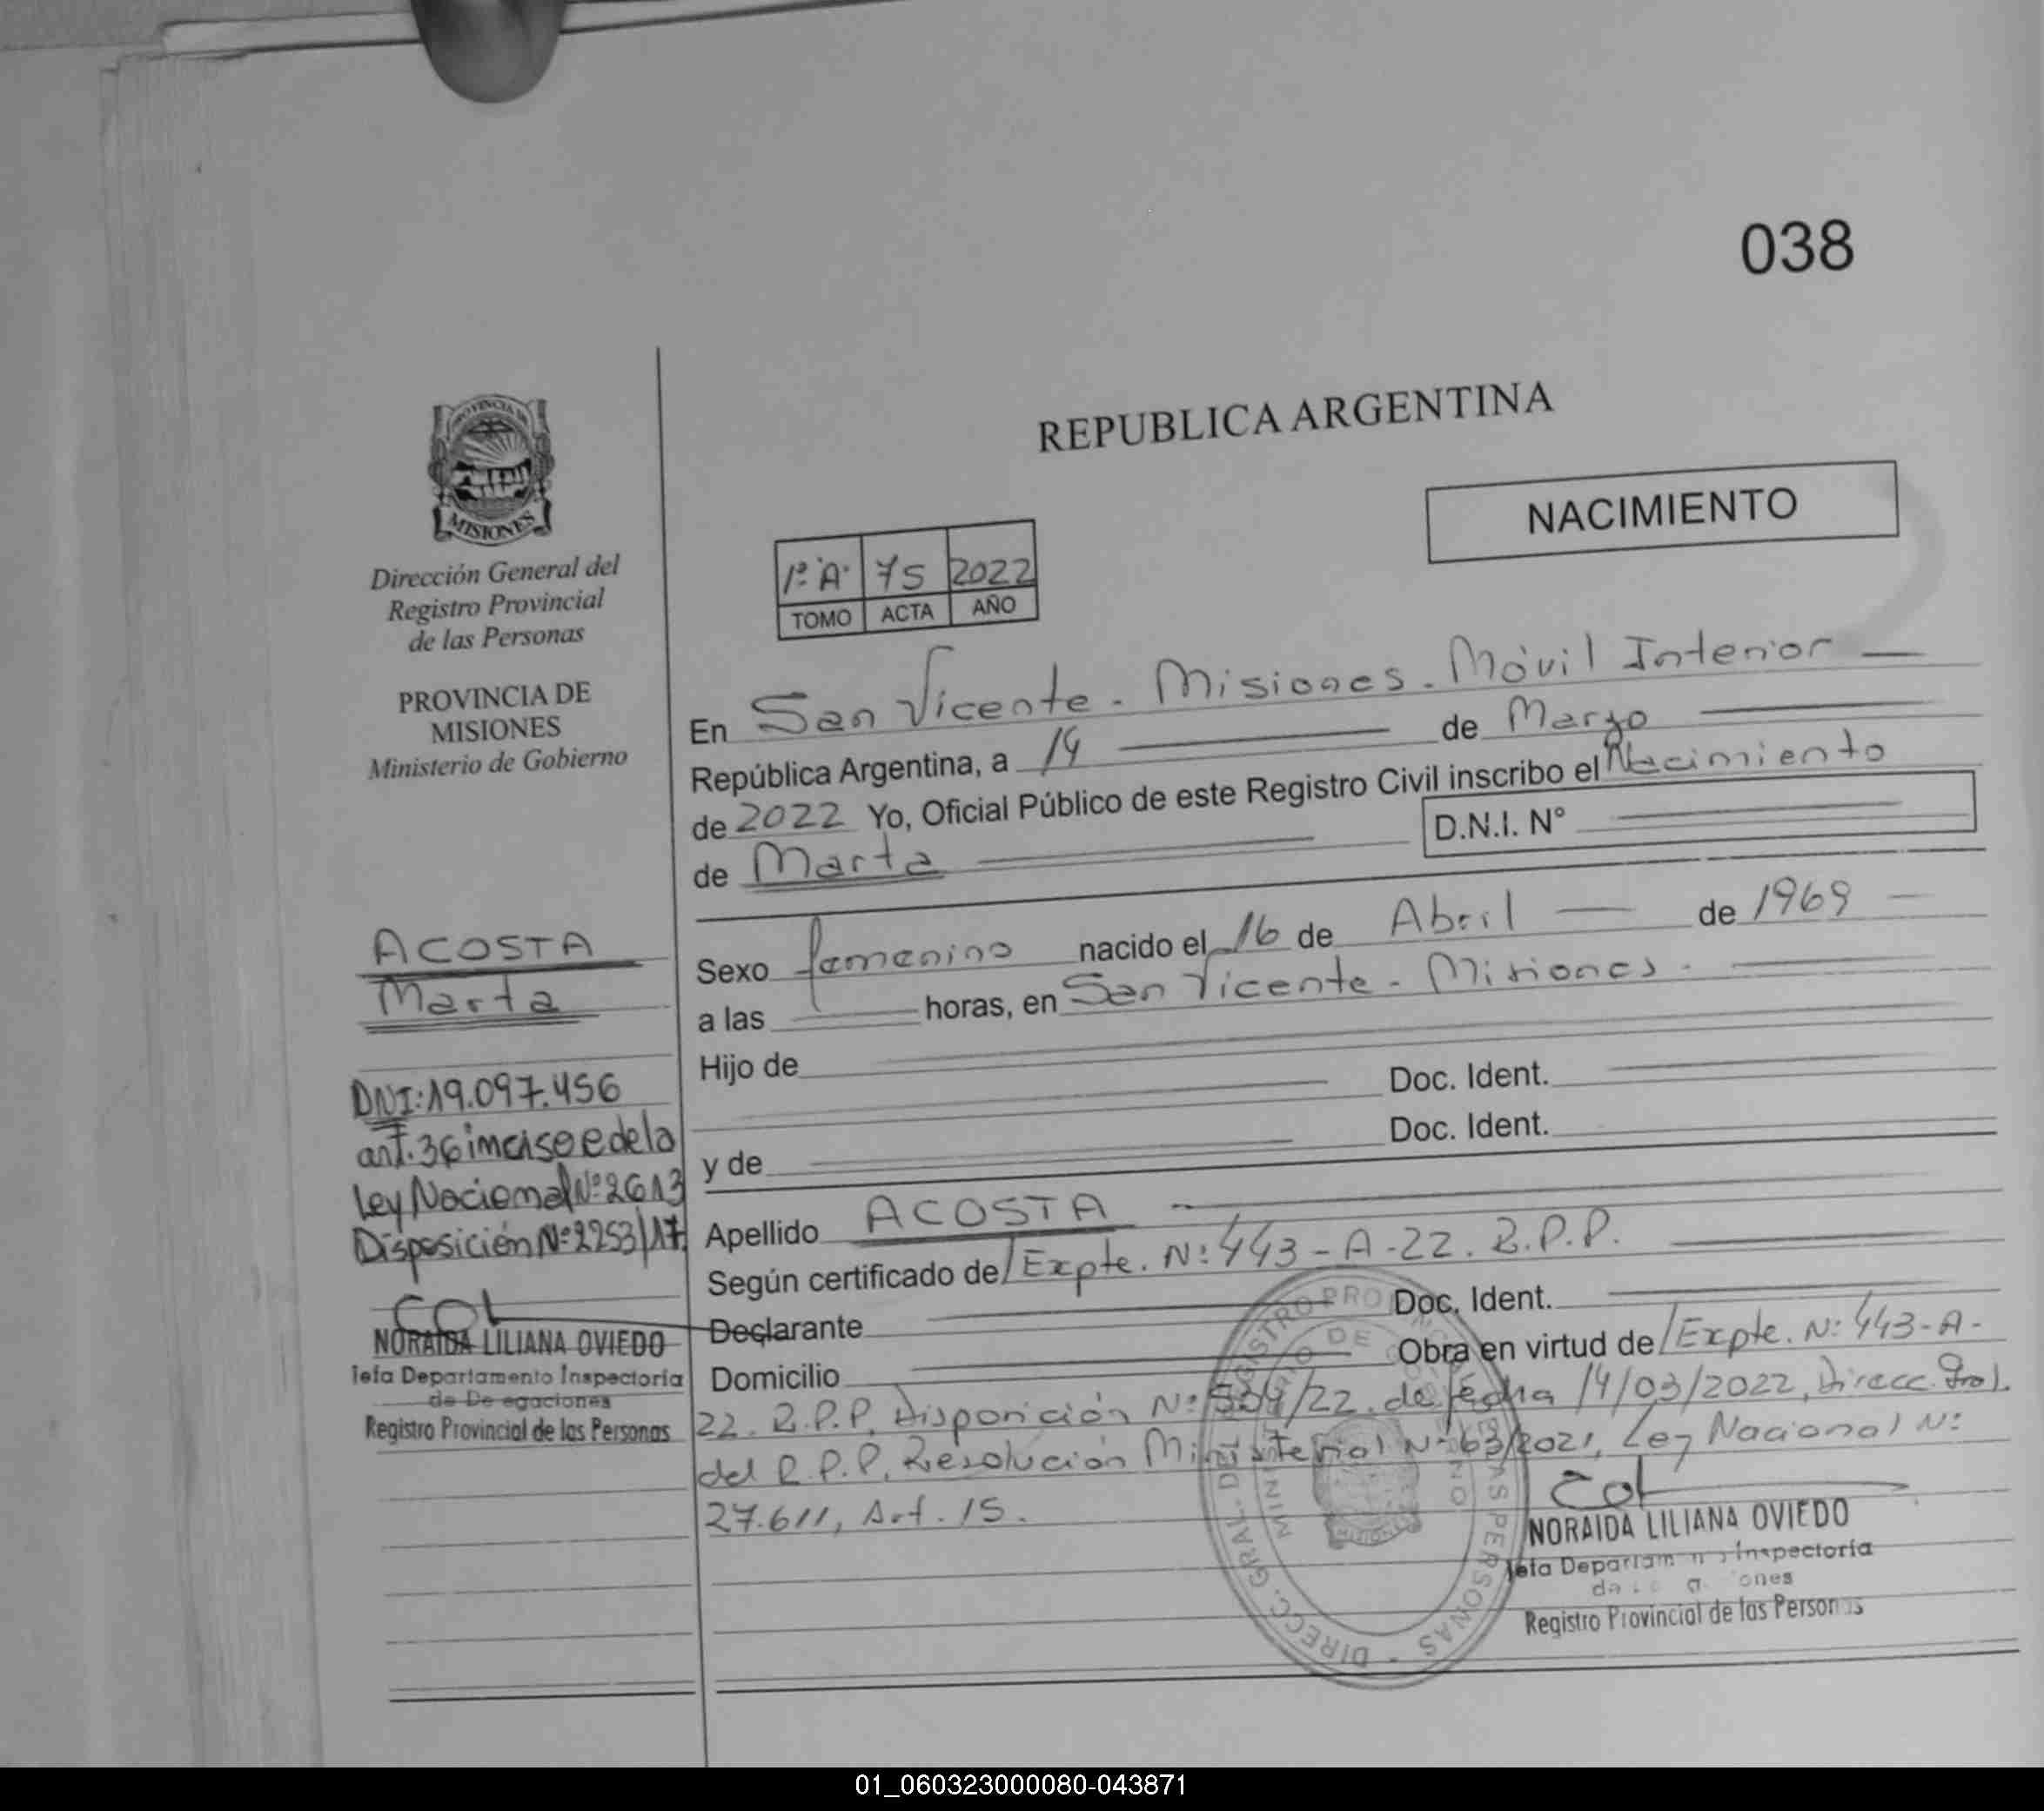 038
REPUBLICA ARGENTINA
NACIMIENTO
PROVINCIA DE
MISIONES
Dirección General del
Registro Provincial
de las Personas
PROVINCIA DE
MISIONES
Ministerio de Gobierno
1º "A" 75 2022
TOMO ACTA AÑO
En San Vicente - Misiones - Móvil Interior
República Argentina, a 14 de Marzo
de 2022 Yo, Oficial Público de este Registro Civil inscribo el Nacimiento
de Marta D.N.I. N°
ACOSTA
Marta
DNI: 19.097.456
art. 36 inciso e de la
Ley Nacional Nº 2613
Disposición Nº 2253/17.
NORAIDA LILIANA OVIEDO
Jefa Departamento Inspectoria
de De egaciones
Registro Provincial de las Personas
Sexo femenino nacido el 16 de Abril de 1969
a las horas, en San Vicente - Misiones -
Hijo de
Doc. Ident.
y de Doc. Ident.
Apellido ACOSTA
Según certificado de Expte. Nº 443-A-22. R.P.P.
Declarante Doc. Ident.
Domicilio Obra en virtud de Expte. Nº 443-A-
22. R.P.P, Disposición Nº 534/22. de fecha 14/03/2022, Direcc. Gral.
del R.P.P, Resolución Ministerial Nº 63/2021, Ley Nacional Nº
27.611, Art. 15.
NORAIDA LILIANA OVIEDO
Jefa Departam Inspectoria
ones
Registro Provincial de las Personas
DIRECC. GRAL. DEL REGISTRO PROV DE LAS PERSONAS
01_060323000080-043871